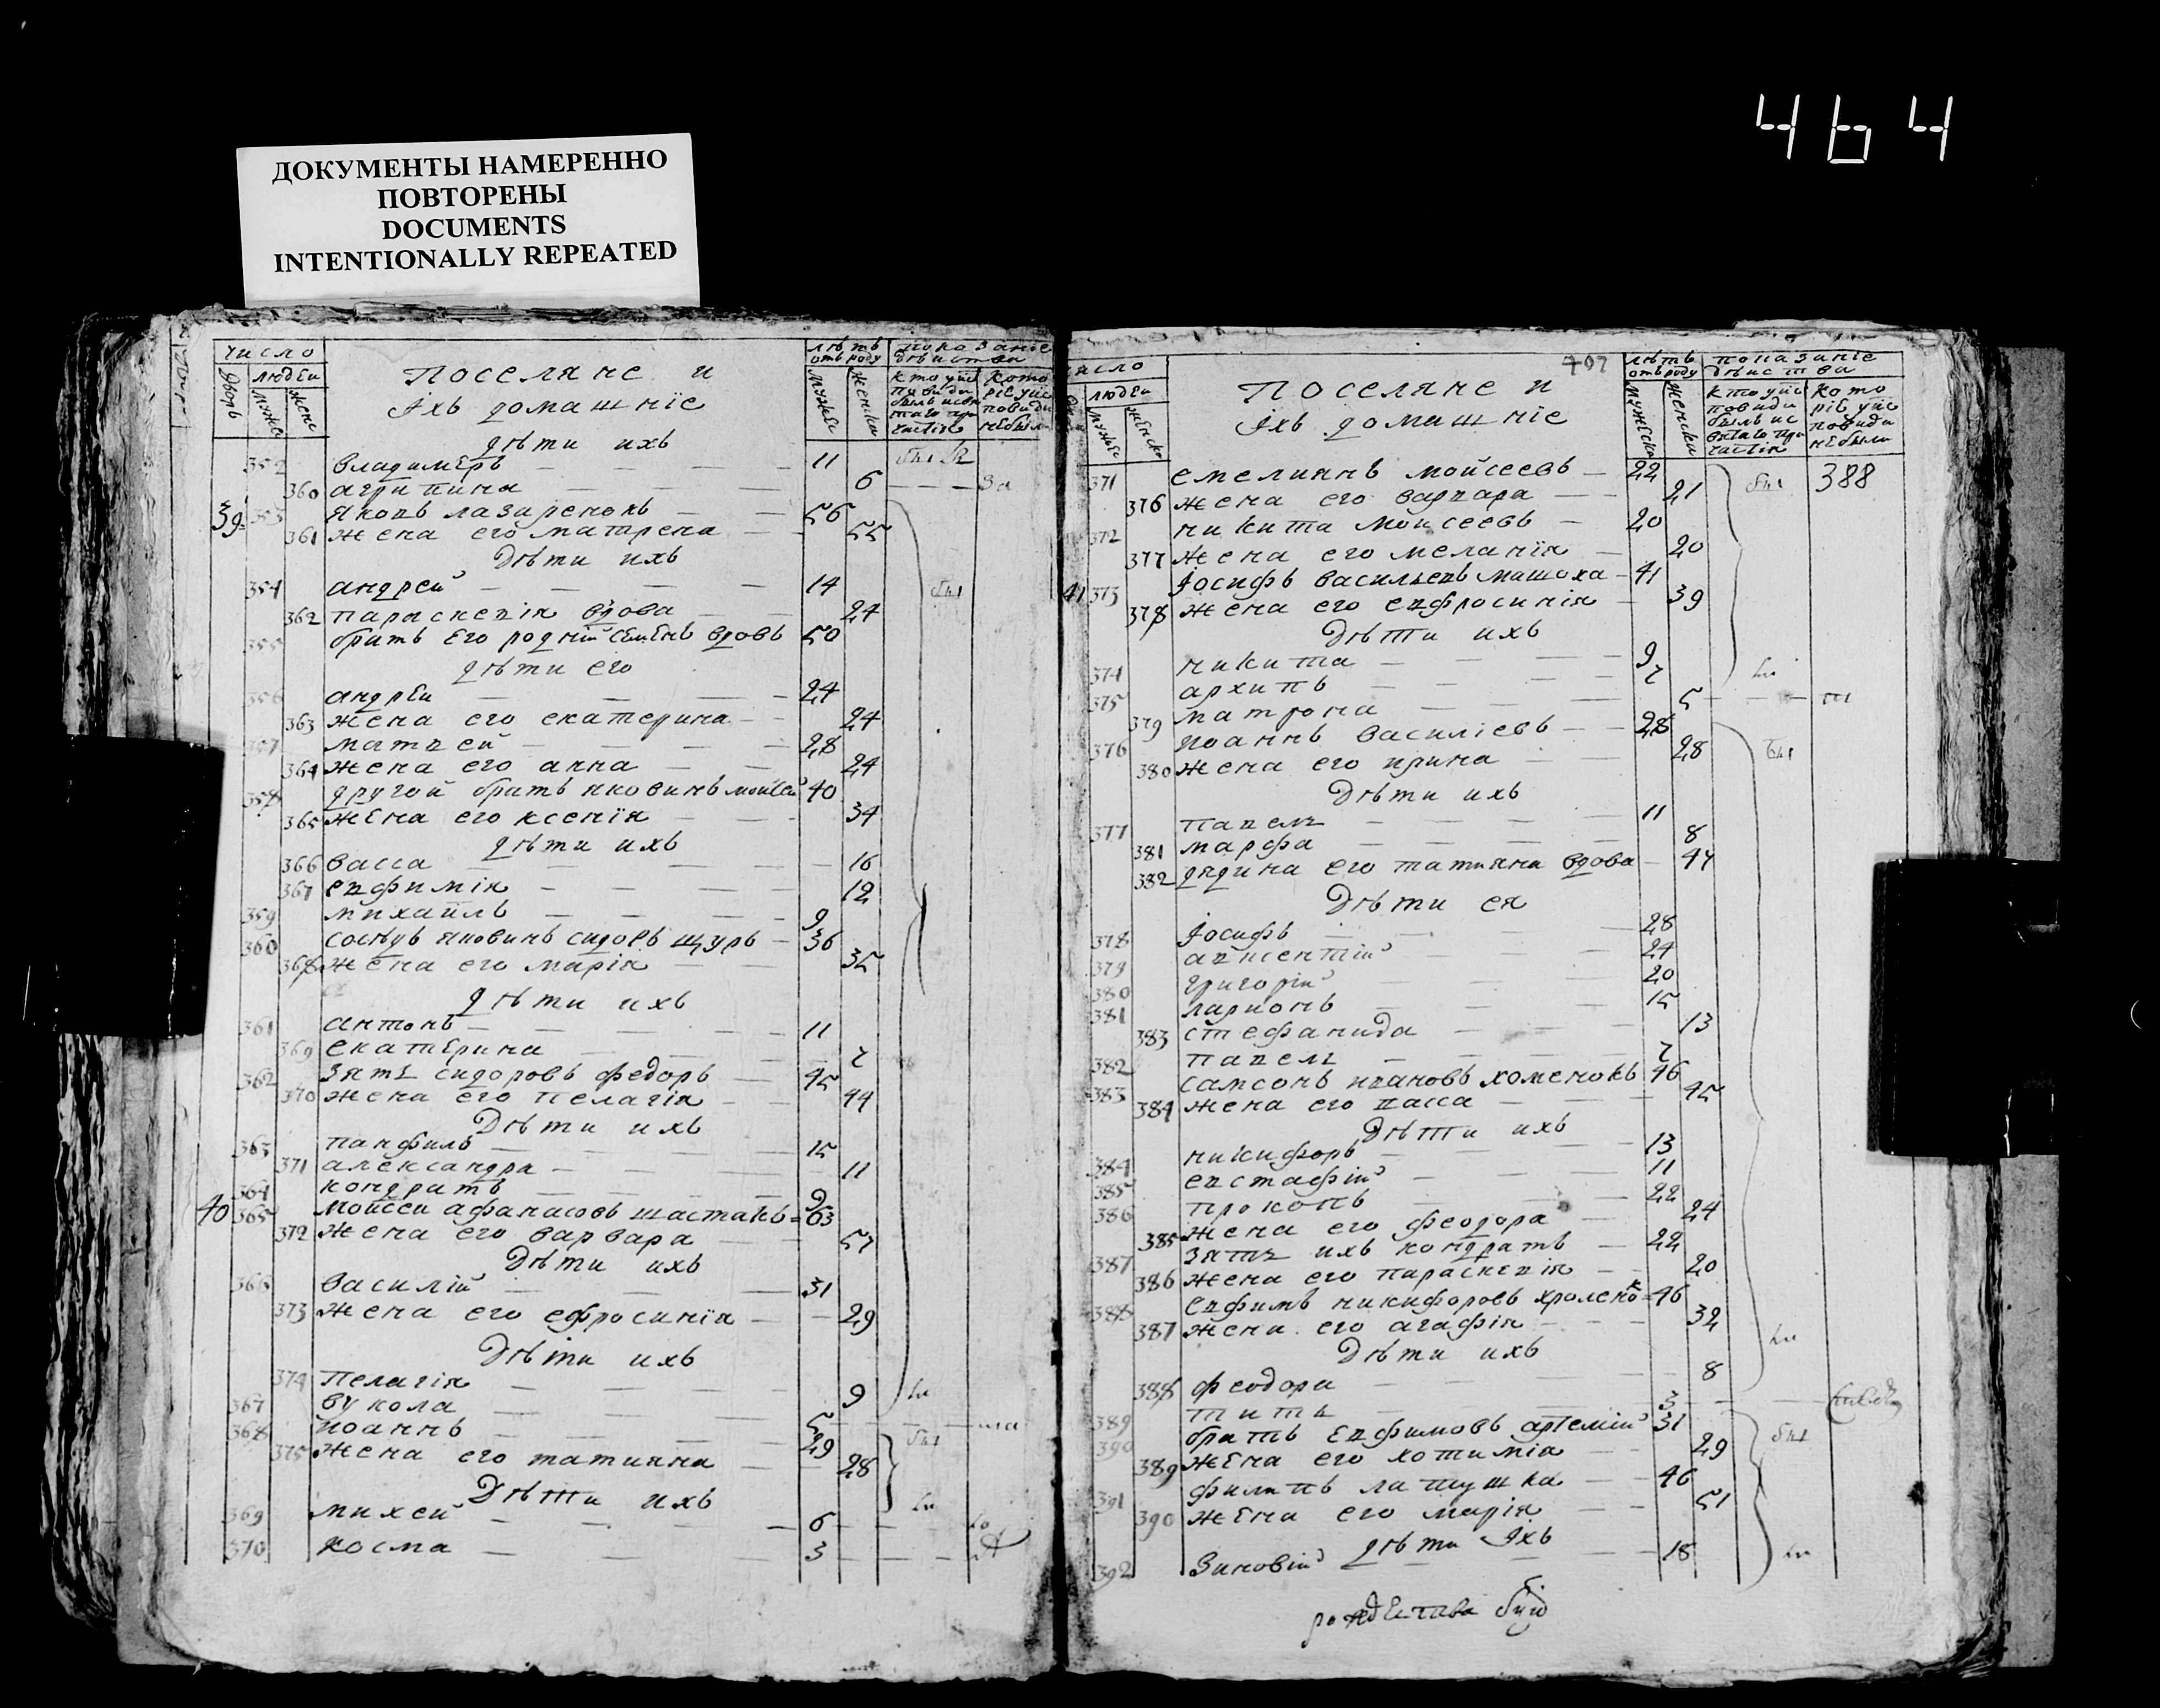 464
ДОКУМЕНТЫ НАМЕРЕННО
ПОВТОРЕНЫ
DOCUMENTS
INTENTIONALLY REPEATED
число
людей
дворъ
поселяне и
іхъ домашніе
лѣтъ
отъ роду
показаніе
дѣиства
дѣти ихъ
352 владимеръ 11
360 агрипина 6
39 353 яковъ лазаренокъ 56
361 жена его матрена 55
дѣти ихъ
354 андрей 14
362 параскевія вдова 24
355 братъ его родній семенъ вдовъ 50
дѣти его
356 андрей 24
363 жена его екатерина 24
357 матвей 28
364 жена его анна 24
358 другой братъ яковинъ мойсей 40
365 жена его ксенія 34
дѣти ихъ
366 васса 16
367 евфимія 12
359 михаилъ 9
360 сосѣдъ яковинъ сидоръ щуръ 36
368 жена его марія 35
дѣти ихъ
361 антонъ 11
369 екатерина 7
362 зять сидоровъ федоръ 45
370 жена его пелагія 44
дѣти ихъ
363 панфилъ 15
371 александра 11
364 кондратъ 9
40 365 мойсей афанасовъ шастакъ 63
372 жена его варвара 57
дѣти ихъ
366 василій 31
373 жена его ефросинія 29
дѣти ихъ
374 пелагія 9
367 вукола 5
368 иоаннъ 29
375 жена его татияна 28
дѣти ихъ
369 михей 6
370 косма 3
число
707
людей
поселяне и
іхъ домашніе
лѣтъ
отъ роду
показаніе
дѣиства
388
371 емелиянъ мойсеевъ 22
376 жена его варвара 21
372 никита моисеевъ 20
377 жена его меланія 20
41 373 Іосифъ васильевъ машоха 41
378 жена его евфросинія 39
дѣти ихъ
374 никита 9
375 архипъ 7
379 матрона 5
376 иоаннъ василіевъ 28
380 жена его ирина 28
дѣти ихъ
377 павелъ 11
381 марфа 8
382 дядина его татияна вдова 44
дѣти ея
378 Іосифъ 28
379 авксентій 24
380 григорій 20
381 ларионъ 15
383 стефанида 13
382 павелъ 7
383 самсонъ ивановъ хоменокъ 46
384 жена его васса 45
дѣти ихъ
384 никифоръ 13
385 евстафій 11
386 прокопъ 22
385 жена его феодора 24
387 зять ихъ кондратъ 22
386 жена его параскевія 20
388 евфимъ никифоровъ хроленокъ 46
387 жена его агафія 32
дѣти ихъ
388 феодора 8
389 титъ 3
390 братъ евфимовъ артемій 31
389 жена его хотимія 29
391 филипъ латушка 46
390 жена его марія 51
дѣти іхъ
392 зиновій 18